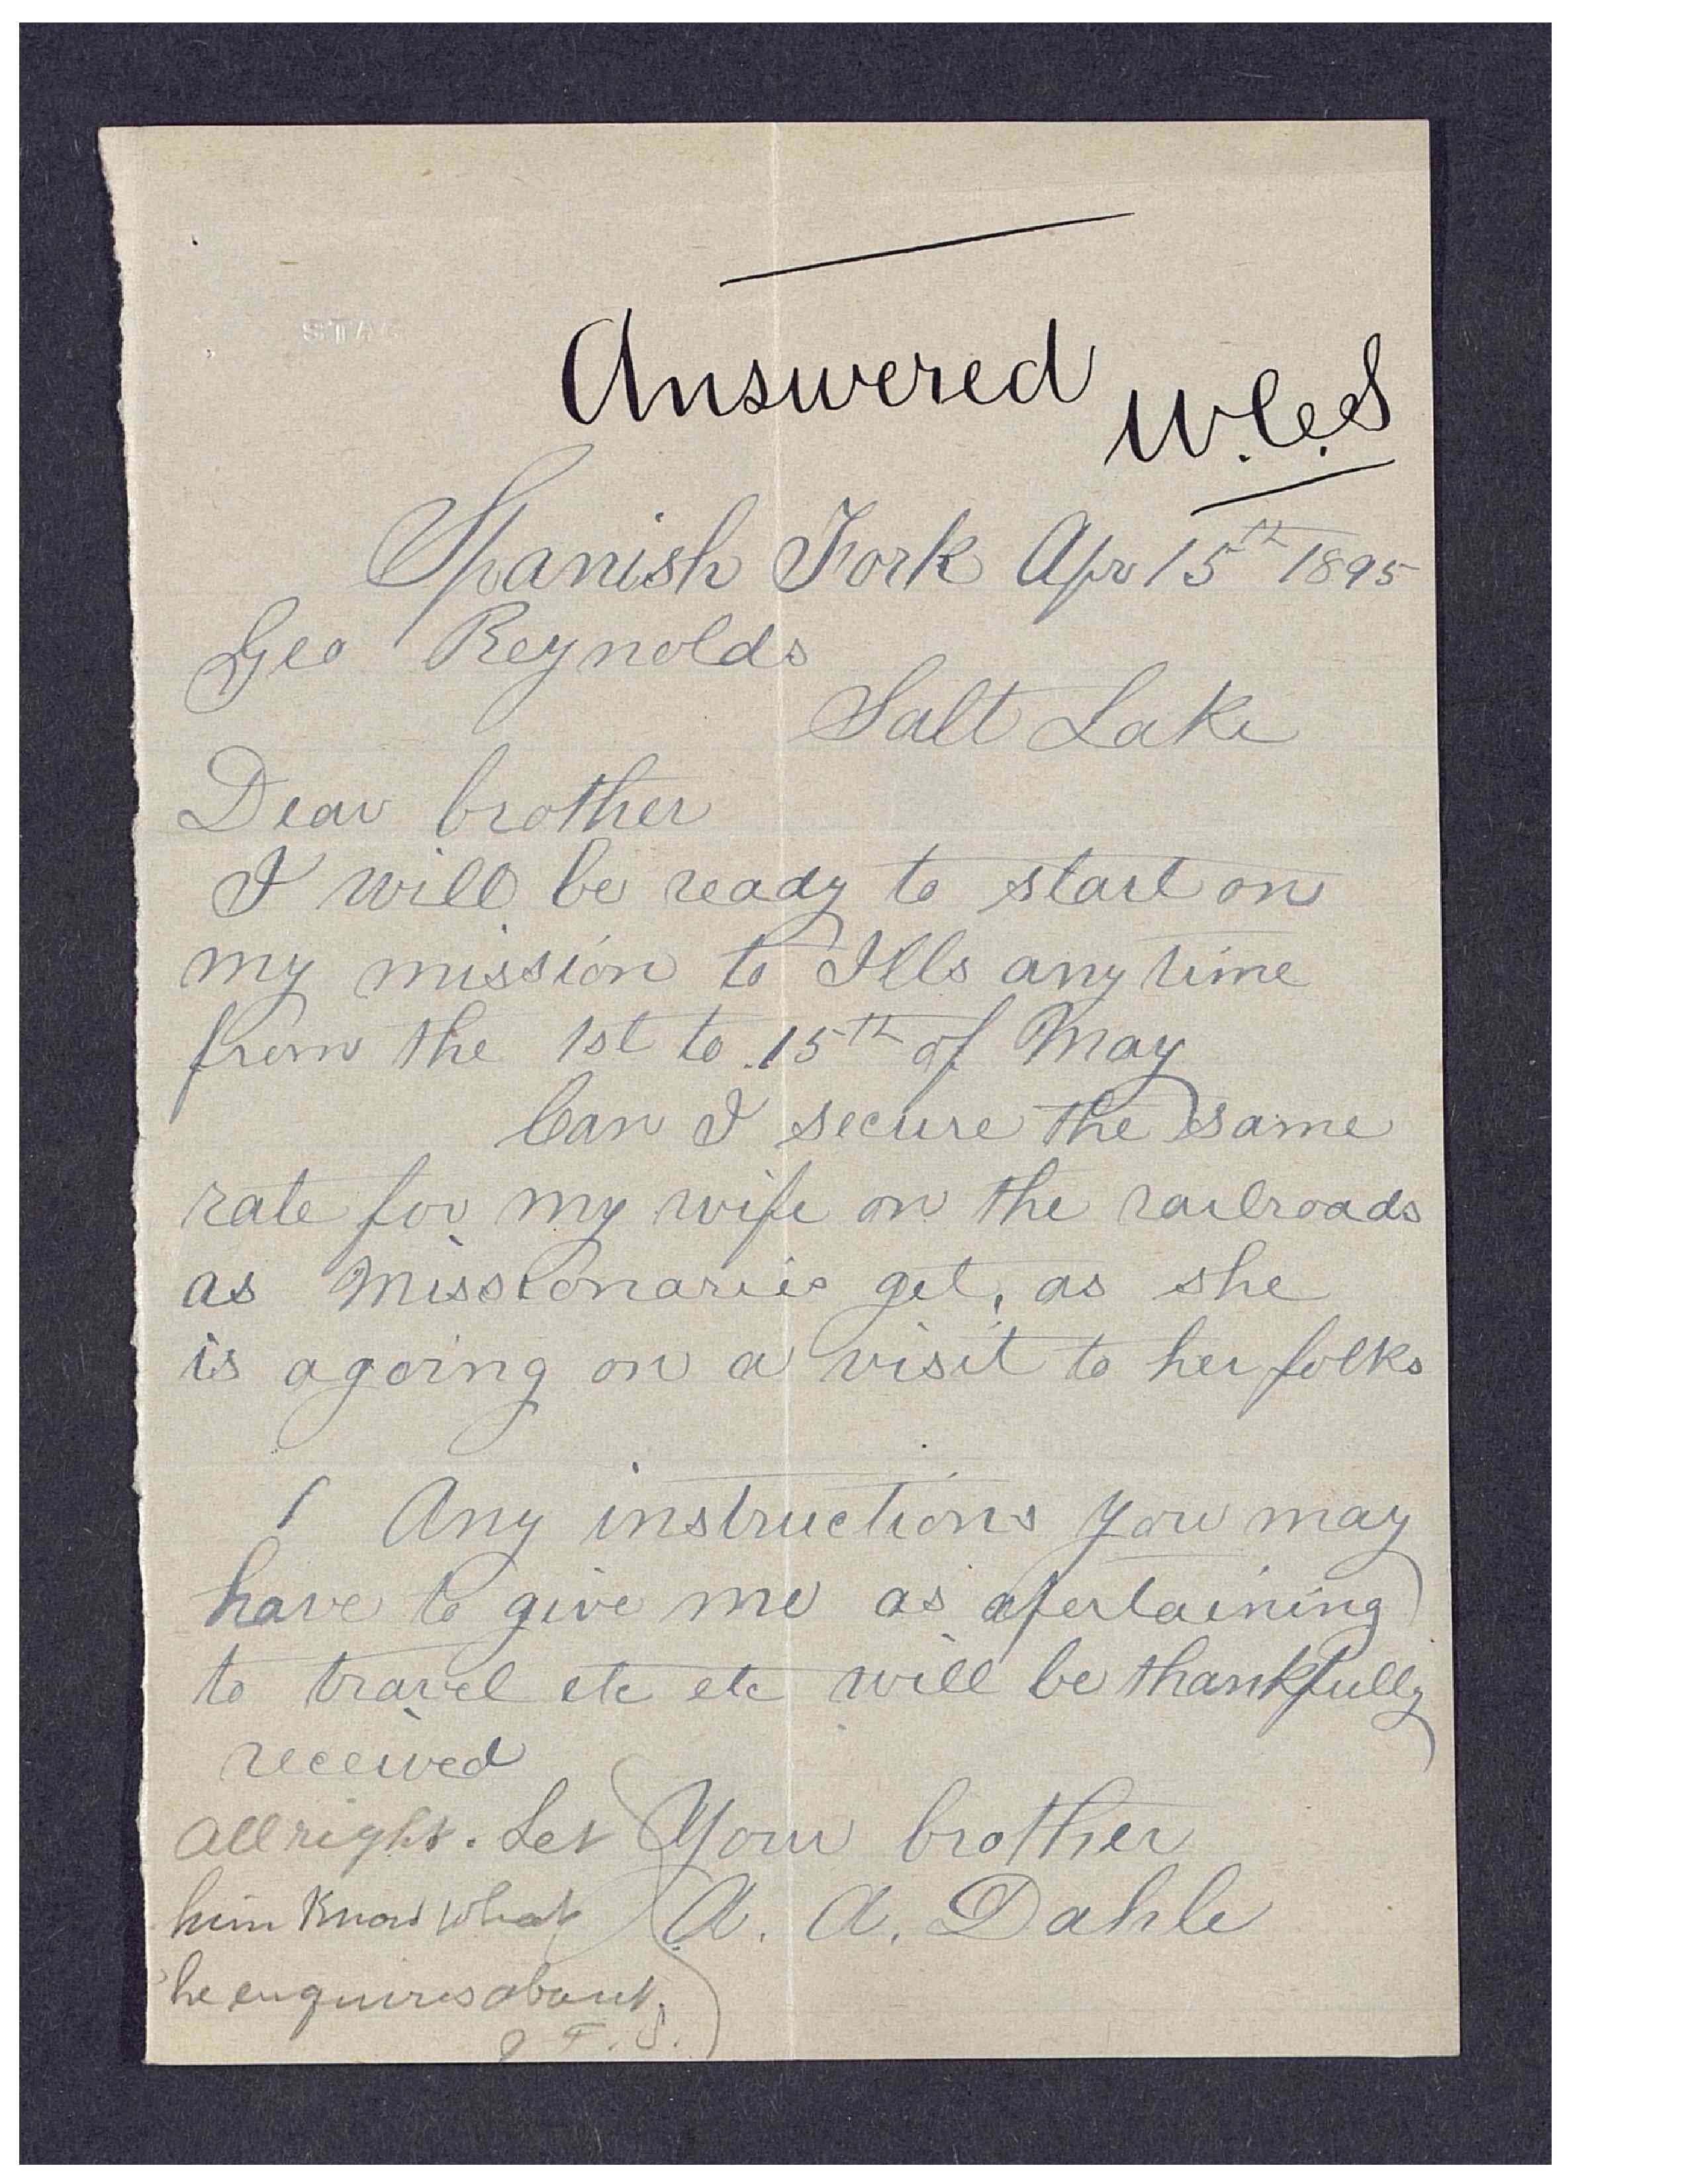 Answered
W.C.S
Spanish Fork Apr 15th 1895
Geo Reynolds
Salt Lake
Dear brother
I will be ready to start on
my mission to Ills any time
from the 1st to 15th of May
Can I secure the same
rate for my wife on the railroads
as Missionaries get, as she
is agoing on a visit to her folks
Any instructions you may
have to give me as apertaining
to travel etc etc will be thankfully
received
Your brother
A. A. Dahle
All right. Let
him know what
he enquires about.
J. F. S.